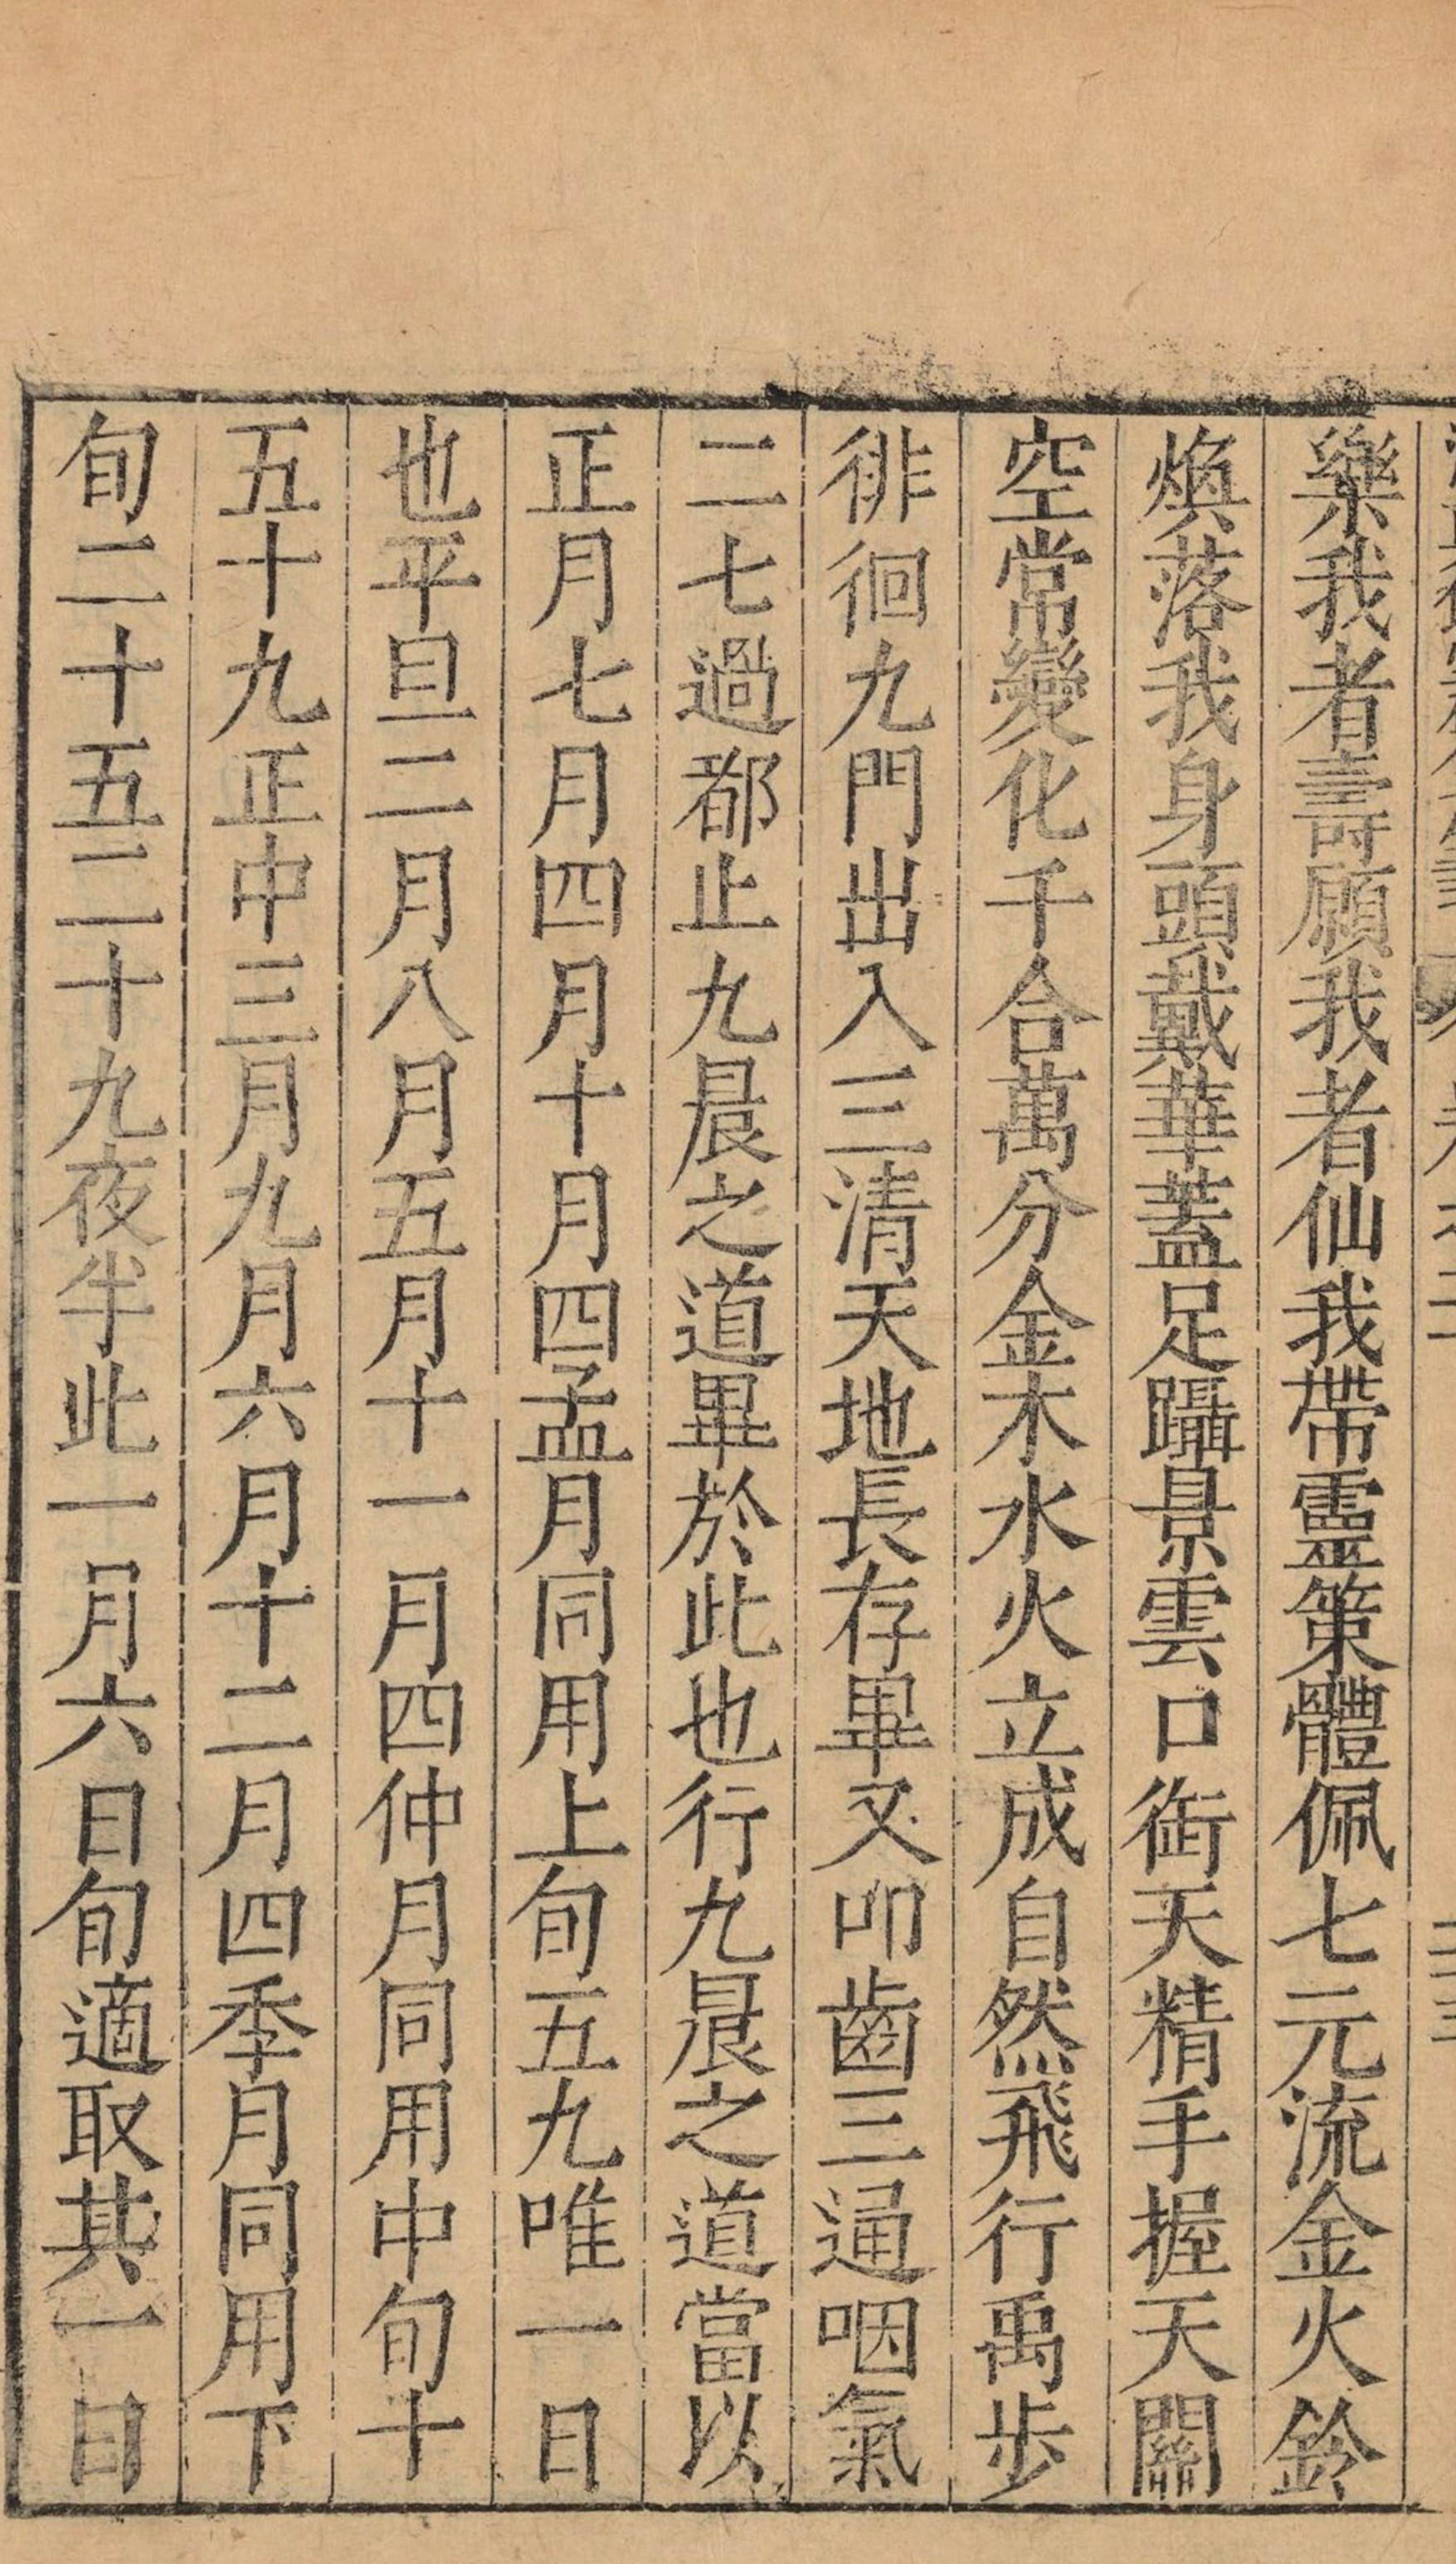 樂我者壽願我者仙我帶靈策體佩七元流金火鈴
煥落我身頭戴華蓋足躡景雲口銜天精手握天關
空常變化千合萬分金木水火立成自然飛行禹步
徘徊九門出入三清天地長存畢又叩齒三通咽氣
二七過都止九晨之道畢於此也行九晨之道當以
正月七月四月十月四孟月同用上旬五九唯一日
也平旦二月八月五月十一月四仲月同用中旬十
五十九正中三月九月六月十二月四季月同用下
旬二十五二十九夜半此一月六日旬適取其一日